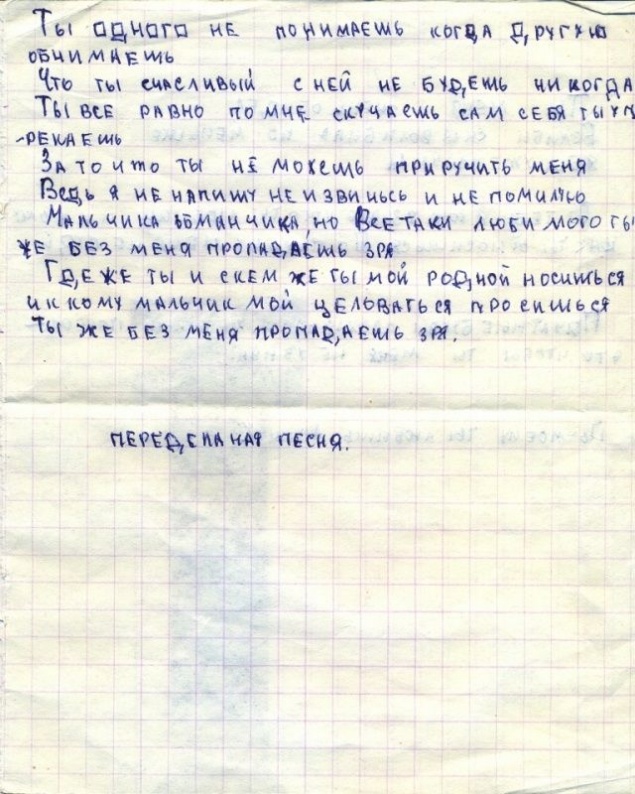 Ты одного не понимаешь когда другую
обнимаешь
Что ты счасливый с ней не будешь никогда
Ты все равно по мне скучаешь сам себя ты уп
-рекаешь
За то что ты не можешь приручить меня
Ведь я не напишу не извинюсь и не помилую
Мальчика обманчика, но Все таки люби мого ты
же без меня пропадаешь зря
Где же ты и скем же ты мой родной носишься
и к кому мальчик мой целоваться просишься
ты же без меня пропадаешь зря.
переделаная песня.